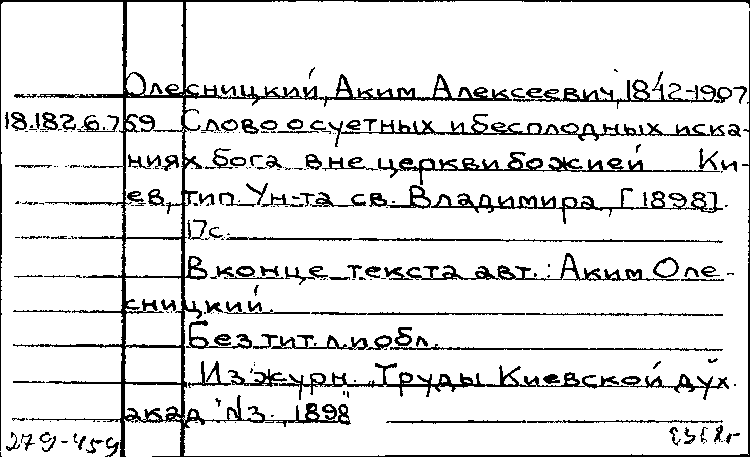 Олесницкий, Аким Алексеевич, 1842-1907
18.182.6.759 Слово о суетных и бесплодных иска-
ниях бога вне церкви божией Ки-
ев, тип. Ун-та св. Владимира, [1898].
17с.
В конце текста авт.: Аким Оле-
сницкий.
Без тит. л. и обл.
Из журн. "Труды Киевской дух.
акад." №3, 1898
279-459